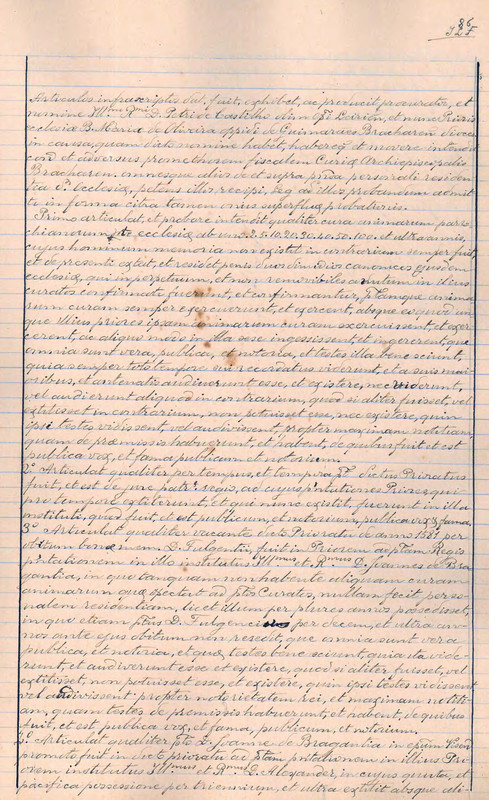 86
Articulos infrascriptos dat, fuit, exhibet, ac producit procurator, et
nomine Illmi Rmi D. Petri de Castilho dim Epi Leirien, et nunc Prioris
ecclesiæ B. Mariæ de Oliveira oppidi de Guimaraes Bracharen dioces
in causa, quam dicto nomine habet, habereq et movere intendit
con et adversus promothorem fiscalem Curiæ Archiepiscopalis
Bracharen, omnesque alios de et supra pnda personali residen
tia d. ecclesiæ, petens illis recipi, seq ad illos probandum admit
ti in forma citra tamen onus superfluæ probationis.
Primo articulat, et probare intendit qualiter cura animarum paro
chianorum ecclesiæ ab un 5. 10. 20. 30. 40. 50. 100. et ultra annis,
cujus hominum memoria non existit in contrarium semper fuit,
et de presenti extat, et residet penes duos canonicos ejusdem
ecclesiæ, qui in perpetuum, et non removibiles
curatos confirmati fuerunt, et confirmantur, anima
rum curam semper exercuerunt, et exercent, absque eo quod un
que illius priores ipsam animarum curam exercuissent, et exer
cerent, ac aliquo modo in illa sese ingessissent, et ingererent, que
omnia sunt vera, publica, et notoria, et testes illa bene sciunt,
quia semper toto tempore sui recordatus viderunt, et a suis mai
oribus, et antenatis audiverunt esse, et existere, nec viderunt,
vel audierunt aliquod in contrarium, quod si aliter fuisset, vel
extitisset in contrarium, non potuisset esse, nec existere, quin
ipsi testes vidissent, vel audivissent, propter maximam notitiam,
quam de præmissis habuerunt, et habent, de quibus fuit et est
publica vox, et fama publicum et notorium.
2.º Articulat qualiter per tempus, et tempora dictus Prioratus
fuit, et est de jure patrº regio, ad cujus pntationes Priores qui
pro tempore extiterunt, et qui nunc existit, fuerunt in illa
instituti, quod fuit, et est publicum, et notorium, publica vox & fama.
3.º Articulat qualiter vacante dicto Prioratu de anno 1581 per
obitum bonæ mem D. Fulgentii, fuit in Priorem ad ptam Regis
pntationem in illo institutus Illmus et Rmus D. Joannes de Bra
gantia, in quo tanquam non habente aliquam curam
animarum quæ spectet ad ptos Curatos, nullam fecit perso
nalem residentiam, licet illum per plures annos possedisset,
in quo etiam ptus D. Fulgencius per decem, et ultra an
nos ante ejus obitum non resedit, quæ omnia sunt vera
publica, et notoria, et quæ testes bene sciunt, quia ita vide
runt, et audiverunt esse et existere, quod si aliter fuisset, vel
extitisset, non potuisset esse, et existere, quin ipsi testes vidissent
vel audivissent propter notorietatem rei, et maximam notiti
am, quam testes de premissis habuerunt, et habent, de quibus
fuit, et est publica vox, et fama, publicum, et notorium.
4.º Articulat qualiter pto D. Joanne de Bragantia in epum Visen
promoto fuit in dicto prioratu ad ptam pntationem in illius Pri
orem institutus Illmus et Rmus D. Alexander, in cujus quieta, et
pacifica possessione per triennium, et ultra extitit absque ali